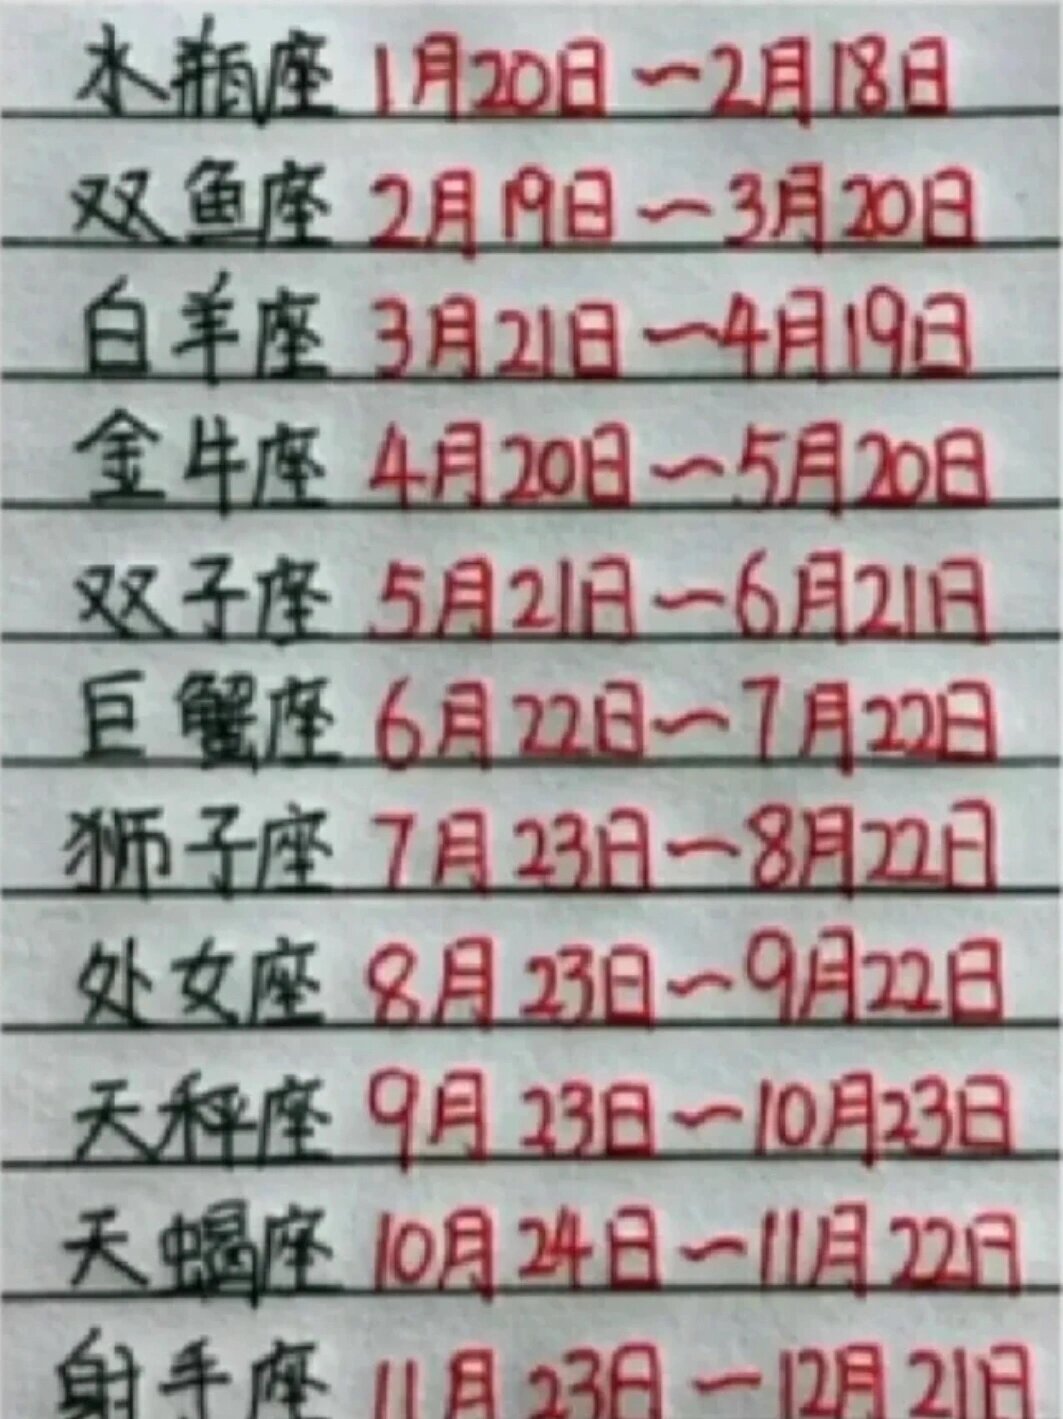 水瓶座 1月20日~2月18日
双鱼座 2月19日~3月20日
白羊座 3月21日~4月19日
金牛座 4月20日~5月20日
双子座 5月21日~6月21日
巨蟹座 6月22日~7月22日
狮子座 7月23日~8月22日
处女座 8月23日~9月22日
天秤座 9月23日~10月23日
天蝎座 10月24日~11月22日
射手座 11月23日~12月21日